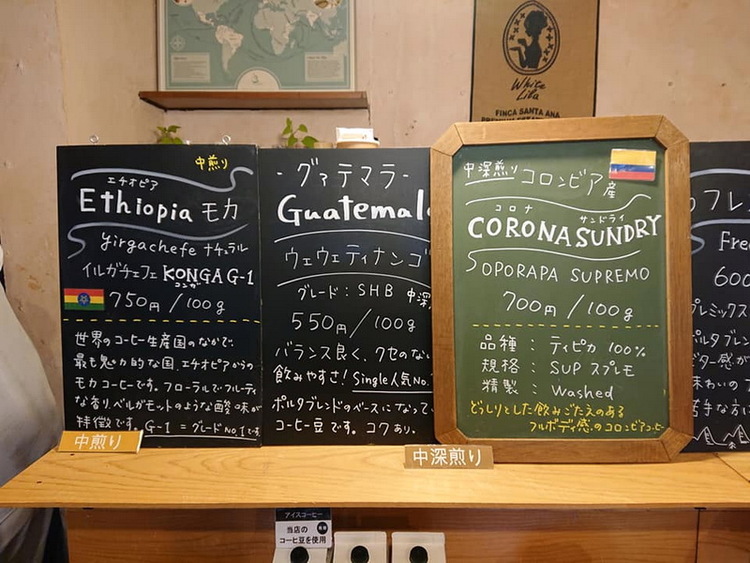 White
Lila
FINCA SANTA ANA
中煎り
エチオピア
Ethiopia モカ
yirgachefe ナチュラル
イルガチェフェ KONGA G-1
コンガ
750円/100g
世界のコーヒー生産国のなかで、
最も魅力的な国、エチオピアからの
モカコーヒーです。フローラルでフルーティ
な香り、ベルガモットのような酸味が
特徴です。G-1 = グレードNo.1です
中煎り
-グァテマラ-
Guatemal
ウェウェティナンゴ
グレード:SHB 中深
550円/100g
バランス良く、クセのない
飲みやすさ! Single人気No.
ポルタブレンドのベースになって
コーヒー豆です。コクあり。
中深煎り
中深煎り コロンビア産
コロナ サンドライ
CORONA SUNDRY
OPORAPA SUPREMO
700円/100g
品種:ティピカ 100%
規格:SUP スプレモ
精製:Washed
どっしりとした飲みごたえのある
フルボディ感のコロンビアコーヒー
フレ
Fre
600
プレミックス
ポルタブレン
ビター感が
味わいの
苦手な方に
アイスコーヒー
当店の
コーヒ豆を使用